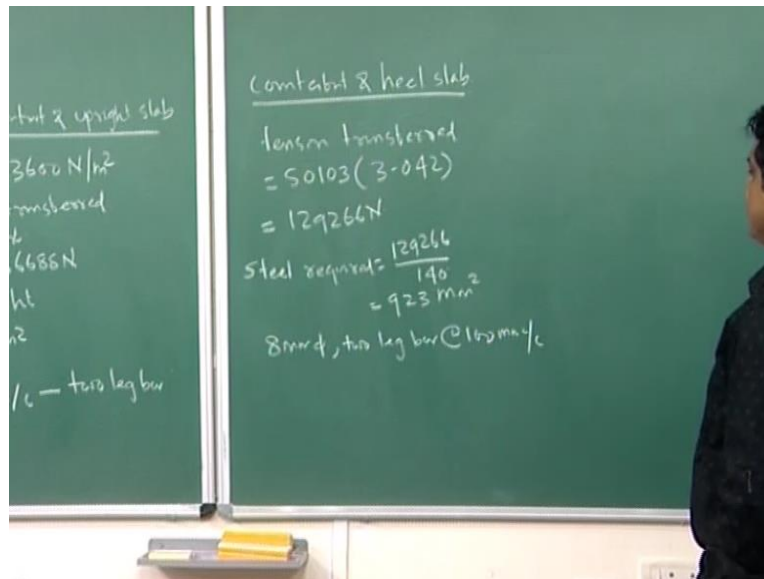 -tfort & upright slab
3600 N/m²
ransferred
6688N
ht
m²
/c — two leg bar
Counterfort & heel slab
tension transferred
= 50103(3-0.42)
= 129266N
Steel required = 129266
140
= 923 mm²
8mmφ, two leg bar @ 100 mm c/c